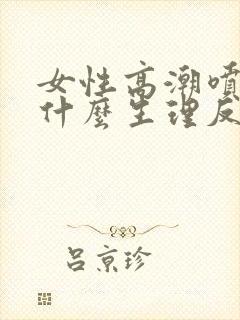 女性高潮噴
什麼生理反
呂京珍